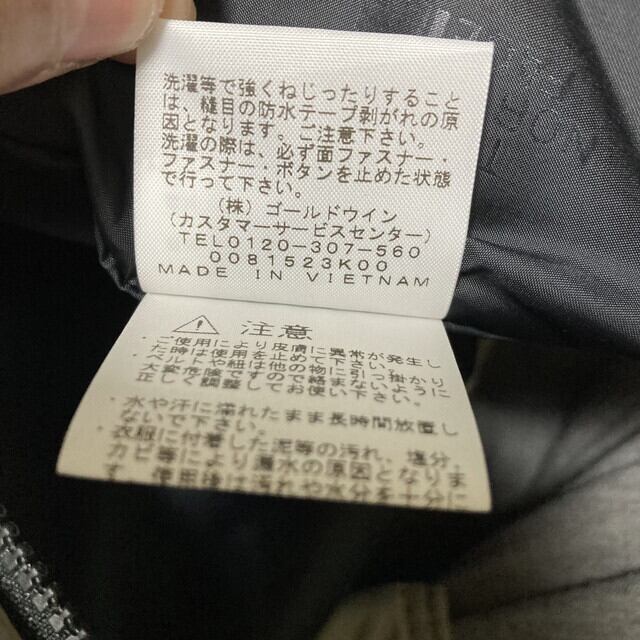 洗濯等で強くねじったりすること
は、縫目の防水テープ剥がれの原
因となります。ご注意下さい。
洗濯の際は、必ず面ファスナー・
ファスナー・ボタンを止めた状態
で行って下さい。
(株) ゴールドウイン
(カスタマーサービスセンター)
TEL0120-307-560
0081523K00
MADE IN VIETNAM
注意
・ご使用により皮膚に異常が発生し
た時は使用を止めて下さい。
・ベルトや紐は他の物に引っ掛かり
大変危険ですので絡まないように
正しく調整してお使い下さい。
・水や汗に濡れたまま長時間放置し
ないで下さい。
・衣服に付着した泥等の汚れ、塩分、
カビ等により漏水の原因となりま
す。使用後は汚れや水分を十分